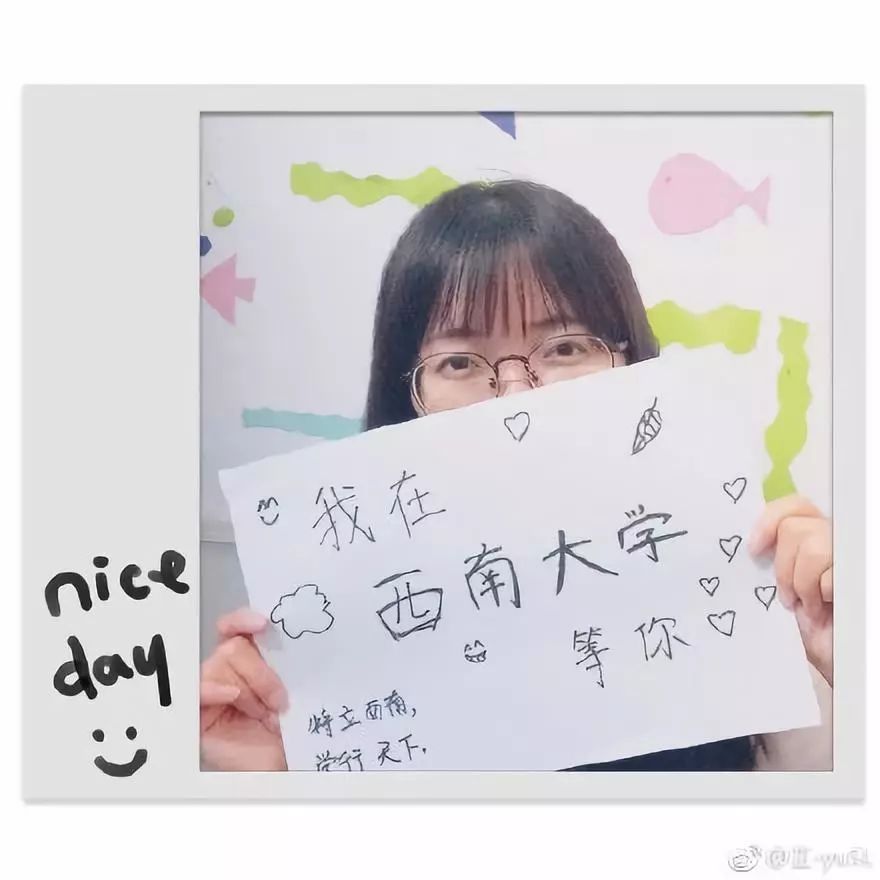 nice
day
我在
西南大学
等你
特立西南,
学行天下.